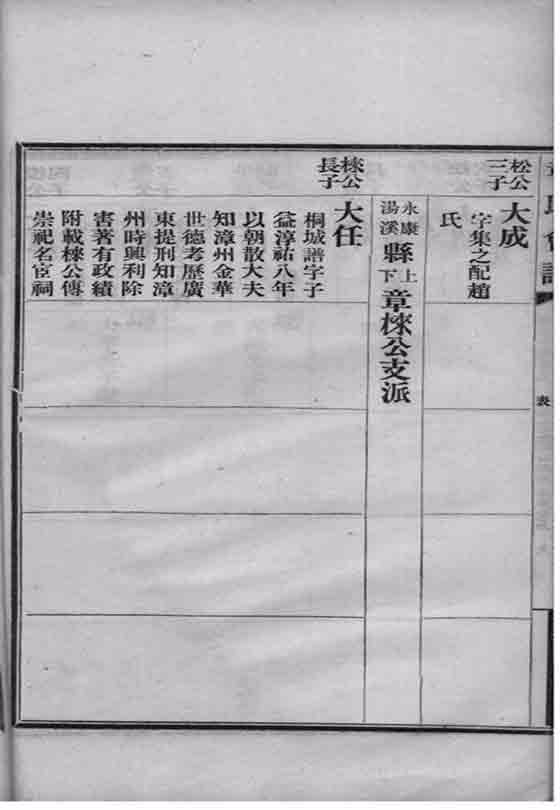 表
松公
三子
大成
字集之配趙
氏
永康
湯溪
縣
上
下
章楶公支派
楶公
長子
大任
桐城譜字子
益淳祐八年
以朝散大夫
知漳州金華
世德考歷廣
東提刑知漳
州時興利除
害著有政績
附載楶公傳
崇祀名宦祠